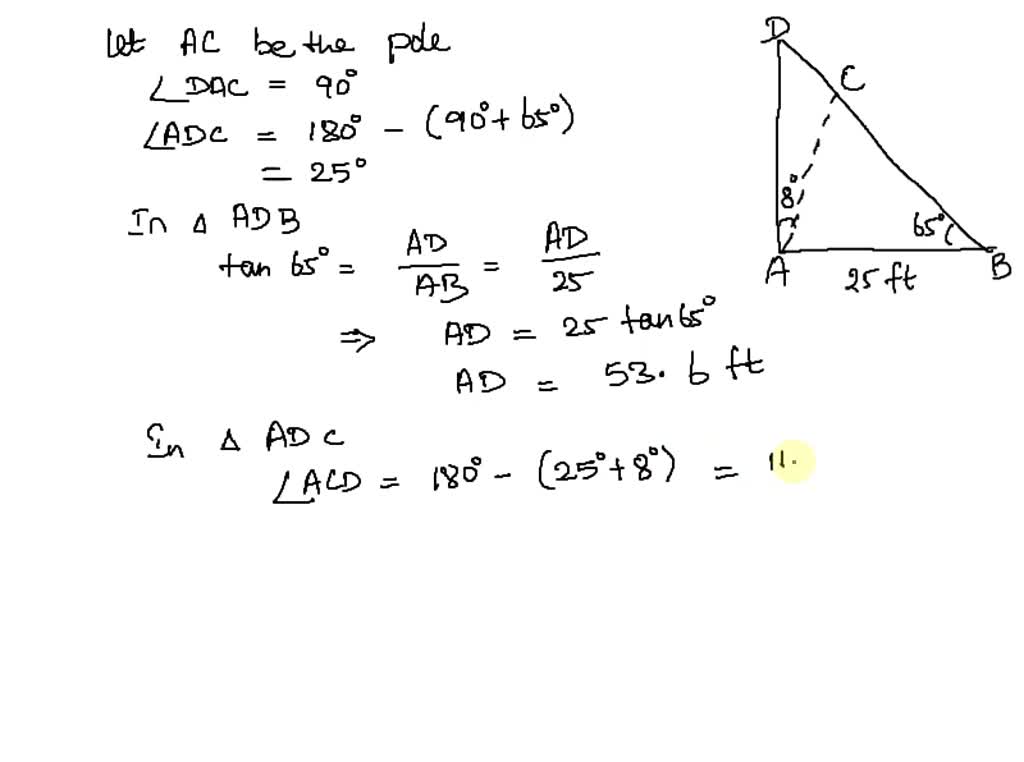 Let AC be the pole
∠DAC = 90°
∠ADC = 180° - (90° + 65°)
= 25°
In Δ ADB
tan 65° = AD/AB = AD/25
⇒ AD = 25 tan 65°
AD = 53.6 ft
In Δ ADC
∠ACD = 180° - (25° + 8°) = 11.
D
C
8°
65°
A
25 ft
B